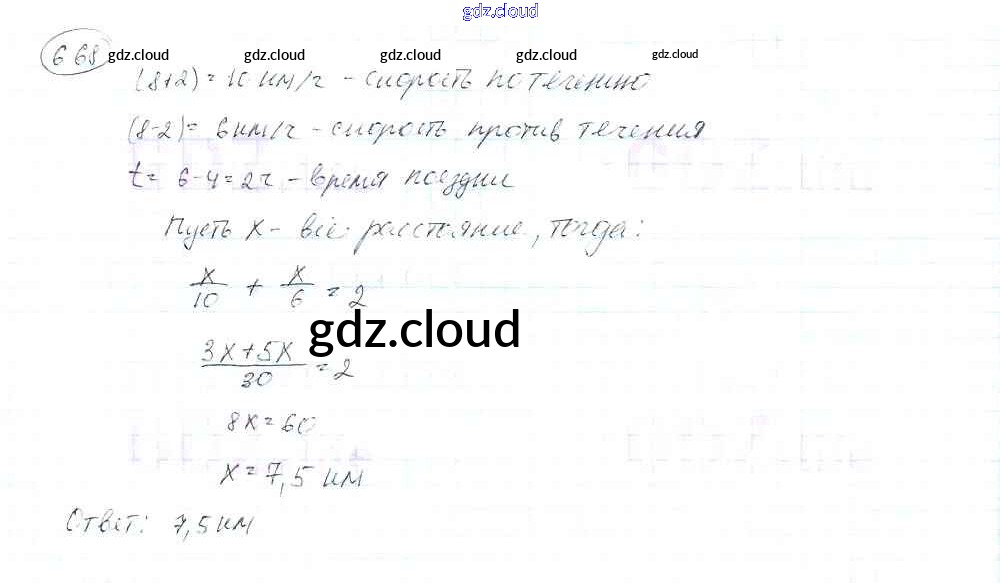 gdz.cloud
668 gdz.cloud gdz.cloud gdz.cloud gdz.cloud gdz.cloud
(8+2)= 10 км/ч - скорость по течению
(8-2)= 6 км/ч - скорость против течения
t= 6-4=2ч - время поездки
Пусть x - всё расстояние, тогда:
x/10 + x/6 = 2
gdz.cloud
3x+5x/30 = 2
8x=60
x=7,5 км
Ответ: 7,5 км